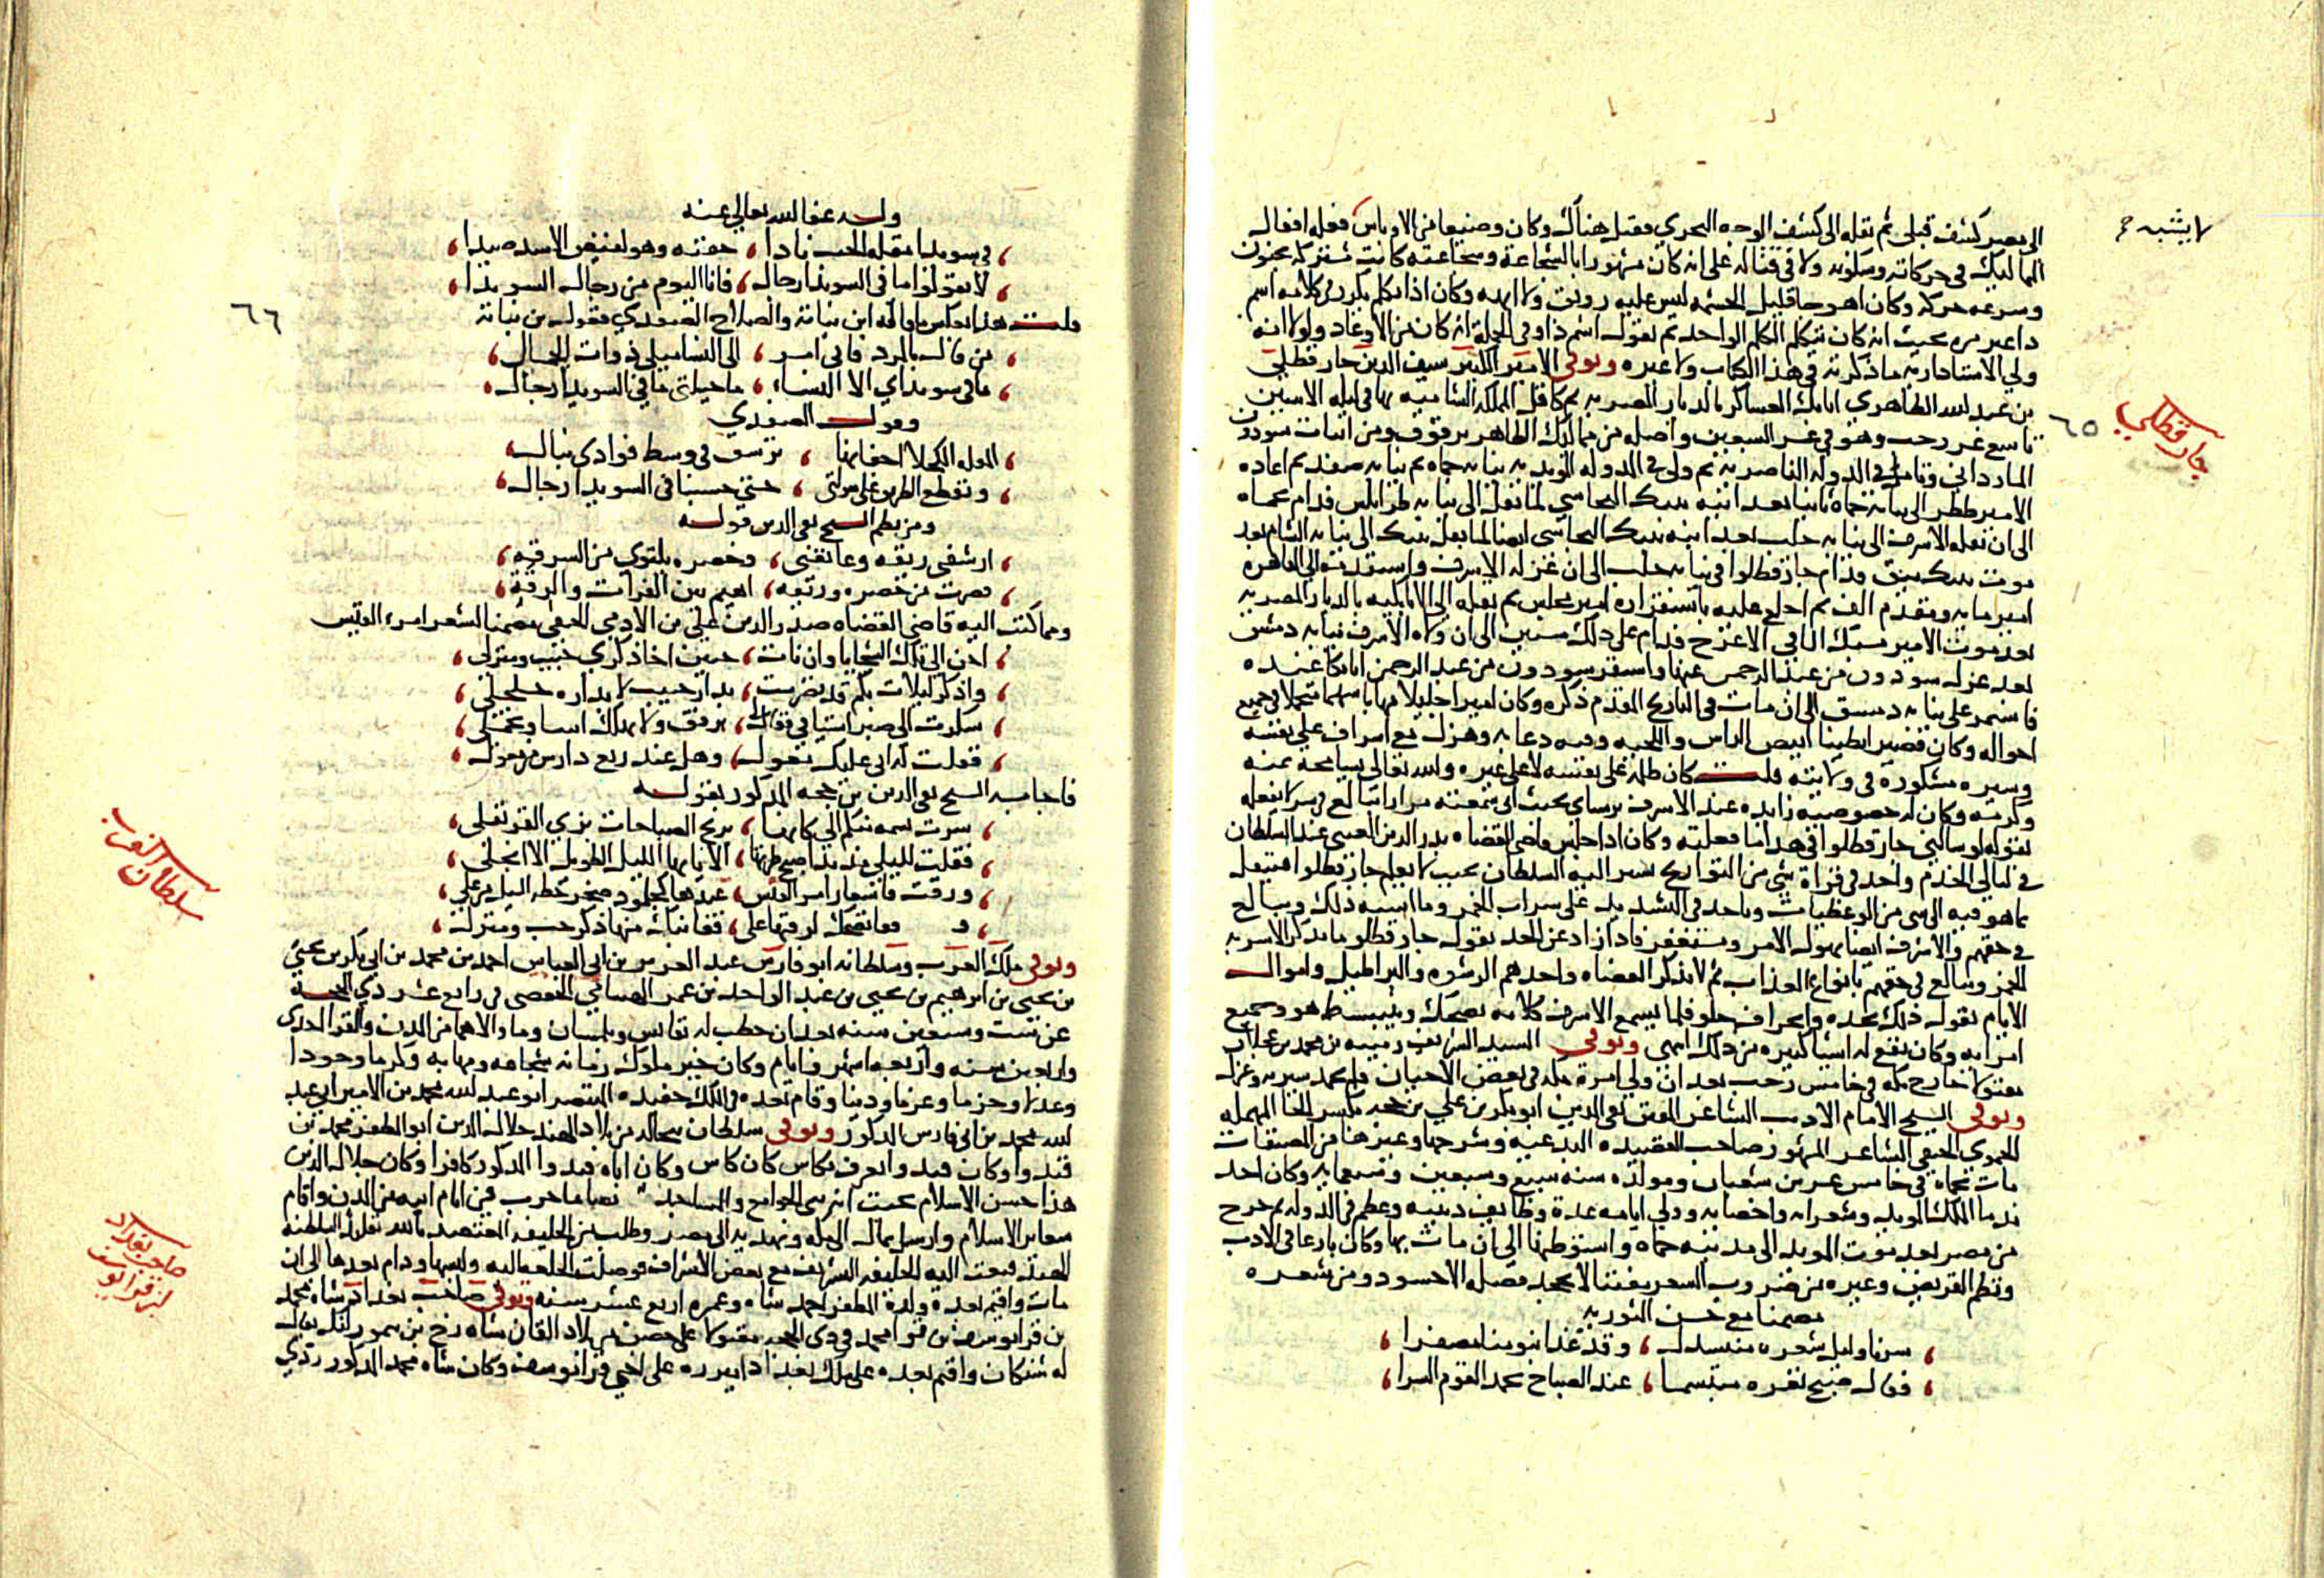 لا يشبه
الى مصر كشف قبلى ثم نقله الى كشف الوجه البحري فقتل هناك وكان وضيعا من الاوباش فعله افعال
المماليك في حركاته وسكونه ولا في قتاله على انه كان مشهورا بالشجاعة وشجاعته كانت مشتركة بجنون
وسرعه حركه وكان اهوجا قليل الحشمه ليس عليه رونق ولا ابهه وكان اذا تكلم يكرر في كلامه اسم
داعير مره بحيث انه كان يتكلم الكلم الواحد ثم يقول اسم ذا وفي الجملة انه كان من الاوغاد ولولا انه
ولي الاستادارية ما ذكرته في هذا الكتاب ولا غيره وتوفي الامير الكبير سيف الدين جارقطلي
بن عبد الله الظاهري اتابك العساكر بالديار المصريه ثم كافل المملكه الشاميه بها في ليله الاثنين
٦٥
جارقطلي
تاسع عشر رجب وهو في عشر السبعين واصله من مماليك الظاهر برقوق ومن انيات سودون
المارداني وتامر في الدوله الناصريه ثم ولي في الدوله المويديه نيابه حماه ثم نيابه صفد ثم اعاده
الامير ططر الى نيابة حماه ثانيا بعد انيه تنبك البجاسي لما نقل الى نيابه طرابلس فدام بحماه
الى ان نقله الاشرف الى نيابه حلب بعد انيه تنبك البجاسي ايضا لما نقل تنبك الى نيابه الشام بعد
موت تنبك ميق ودام جارقطلوا في نيابه حلب الى ان عزله الاشرف واستقدمه الى القاهره
امير مايه ومقدم الف ثم اخلع عليه باستقراره امير مجلس ثم نقله الى الاتابكيه بالديار المصريه
بعد موت الامير يشبك الساقي الاعرج فدام على ذلك سنين الى ان ولاه الاشرف نيابه دمشق
بعد عزل سودون من عبد الرحمن عنها واستقر سودون من عبد الرحمن اتابكا عنده
فاستمر على نيابه دمشق الى ان مات في التاريخ المقدم ذكره وكان اميرا جليلا مهابا شهما متجملا في جميع
احواله وكان قصيرا بطينا ابيض الراس واللحيه وفيه دعابه وهزل مع اسراف على نفسه
وسيره مشكورة في ولايته قلت كان ظلمه على نفسه لا على غيره والله تعالى يسامحه بمنه
وكرمه وكان له خصوصيه زايده عند الاشرف برسباي بحيث اني سمعته مرارا يبالغ في
بقوله لو سالني جارقطلوا في هذا ما فعلته وكان اذا جلس قاضي القضاه بدر الدين العيني عند السلطان
في ليالي الخدم واخذ في قراة شي من التواريخ يشير اليه السلطان بحيث لا يعلم جارقطلوا فينتقل
ما هو فيه الى شي من الوعظيات وياخذ في التشديد على شراب الخمر وما اشبه ذلك ويبالغ
في حقهم والاشرف ايضا يهول الامر ويستغفر فاذا زاد عن الحد يقول جارقطلو ما تذكر الا شربه
الخمر وتبالغ في حقهم بانواع العذاب ثم لا تذكر القضاه واخدهم الرشوه والبراطيل واموال
الايتام يقول ذلك بحده وانحراف حلو فلما يسمع الاشرف كلامه يضحك وينبسط هو وجميع
امرايه وكان يقع له اشيا كثيره من ذلك انتهى وتوفي السيد الشريف رميثه بن محمد بن عجلان
مقتولا خارج مكه في خامس رجب بعد ان ولي امرة مكه في بعض الاحيان فلم تحمد سيرته وعزل
وتوفي الشيخ الامام الاديب الشاعر المفنن تقي الدين ابو بكر بن علي بن حجه بكسر الحا المهمله
الحموي الحنفي الشاعر المشهور صاحب القصيده البديعيه وشرحها وغيرها من المصنفات
مات بحماه في خامس عشرين شعبان ومولده سنه سبع وسبعين وسبعمايه وكان احد
ندما الملك المويد وشعرايه واخصايه وولي ايامه عدة وظايف دينيه وعظم في الدوله ثم خرج
من مصر بعد موت المويد الى مدينه حماه واستوطنها الى ان مات بها وكان بارعا في الادب
ونظم القريض وغيره من ضروب الشعر مفتنا لا يجحد فضله الا حسود ومن شعره
مضمنا مع حسن التوريه
سرنا وليل شعره منسدل ، وقد غدا بنومنا مضفرا ،
فقال صبح ثغره مبتسما ، عند الصباح يحمد القوم السرا ،
وله عفا الله تعالى عنه
في سويدا مقله الحب نادا ، جفنه وهو يقنص الاسد صيدا ،
لا تقولوا ما في السويدا رجال ، فانا اليوم من رجال السويدا ،
٦٦
قلت هذا بعكس ما قاله ابن نباتة والصلاح الصفدي فقول بن نباتة
من قال بالمرد فاني امرء ، الى النسا ميلي ذوات الجمال ،
ما في سويداي الا النساء ، ما حيلتي ما في السويدا رجال ،
وقول الصفدي
المقله الكحلا اجفانها ، ترشق في وسط فوادي نبال ،
وتقطع الطرق على سلوتي ، حتى حسبنا في السويدا رجال ،
ومن نظم الشيخ تقي الدين قوله
ارشفني ريقه وعانقني ، وخصره يلتوي من الرقه ،
فصرت من خصره وريقه ، اهيم بين الفرات والرقة ،
ومما كتب اليه قاضي القضاه صدر الدين علي بن الادمي الحنفي مضمنا لشعر امرء القيس
احن الى تلك السجايا وان نات ، حنين اخا ذكرى حبيب ومنزل ،
واذكر ليلات بكم قد تصرمت ، بدار حبيب لا بداره جلجل ،
شكوت الى صبر اشتياقي فقال لي ، ترفق ولا تهلك اسا وتجمل ،
فقلت له اني عليك معول ، وهل عند ربع دارس من معول ،
فاجابه الشيخ تقي الدين بن حجه المذكور بقوله
سرت نسمة منكم الي كانها ، بريح الصبا جات بري القرنفل ،
فقلت لليلي مذ بدا صبح طرسها ، الا ايها الليل الطويل الا انجلي ،
ورقت فاشعار امرء القيس عندها ، كجلمود صخر حطه السيل من علي ،
فقلت قفا نضحك لرقتها على ، قفا نبك من ذكرى حبيب ومنزل ،
سلطان الغرب
وتوفي ملك الغرب وسلطانه ابو فارس عبد العزيز بن ابي العباس احمد بن محمد بن ابي بكر بن يحيى
بن يحيى بن ابرهيم بن يحيى بن عبد الواحد بن عمر الهنتاتي الحفصي في رابع عشر ذي الحجه
عن ست وسبعين سنه بعد ان خطب له بفاس وتلمسان وما والاهما من المدن والقرا احدى
واربعين سنه واربعه اشهر وايام وكان خير ملوك زمانه شجاعه ومهابه وكرما وجودا
وعدلا وحزما وعزما ودينا وقام بعده في الملك حفيده المنتصر ابو عبد الله محمد بن الامير ابي عبد
الله محمد بن ابي فارس المذكور وتوفي سلطان بنجاله من بلاد الهند جلال الدين ابو المظفر محمد بن
فندوا وكان فندوا يعرف بكاس كان كاس وكان اباه فندوا المذكور كافرا وكان جلال الدين
هذا حسن الاسلام بحيث انه بنى الجوامع والمساجد ايضا ما خرب في ايام ابيه من المدن واقام
شعاير الاسلام وارسل بمال الى مكه وبهديه الى مصر وطلب من الخليفه المعتضد بالله تقليد السلطنه
بالهند فبعث اليه الخليفه التشريف مع بعض الاشراف فوصلت الخلعه اليه ولبسها ودام بعدها الى ان
مات واقيم بعده ولده المظفر احمد شاه وعمره اربع عشر سنه وتوفي صاحب بغداد شاه محمد
صاحب بغداد
بن قرا يوسف
بن قرا يوسف بن قرا محمد في ذي الحجه مقتولا على حصن من بلاد القان شاه رخ بن تيمور لنك يقال
له شنكان واقيم بعده على ملك بغداد اميرزه على اخي قرا يوسف وكان شاه محمد المذكور ردي